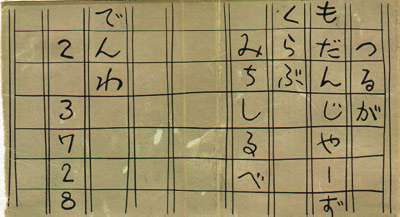 つるが
もだんじやーず
くらぶ
みちしるべ
でんわ
2 3728